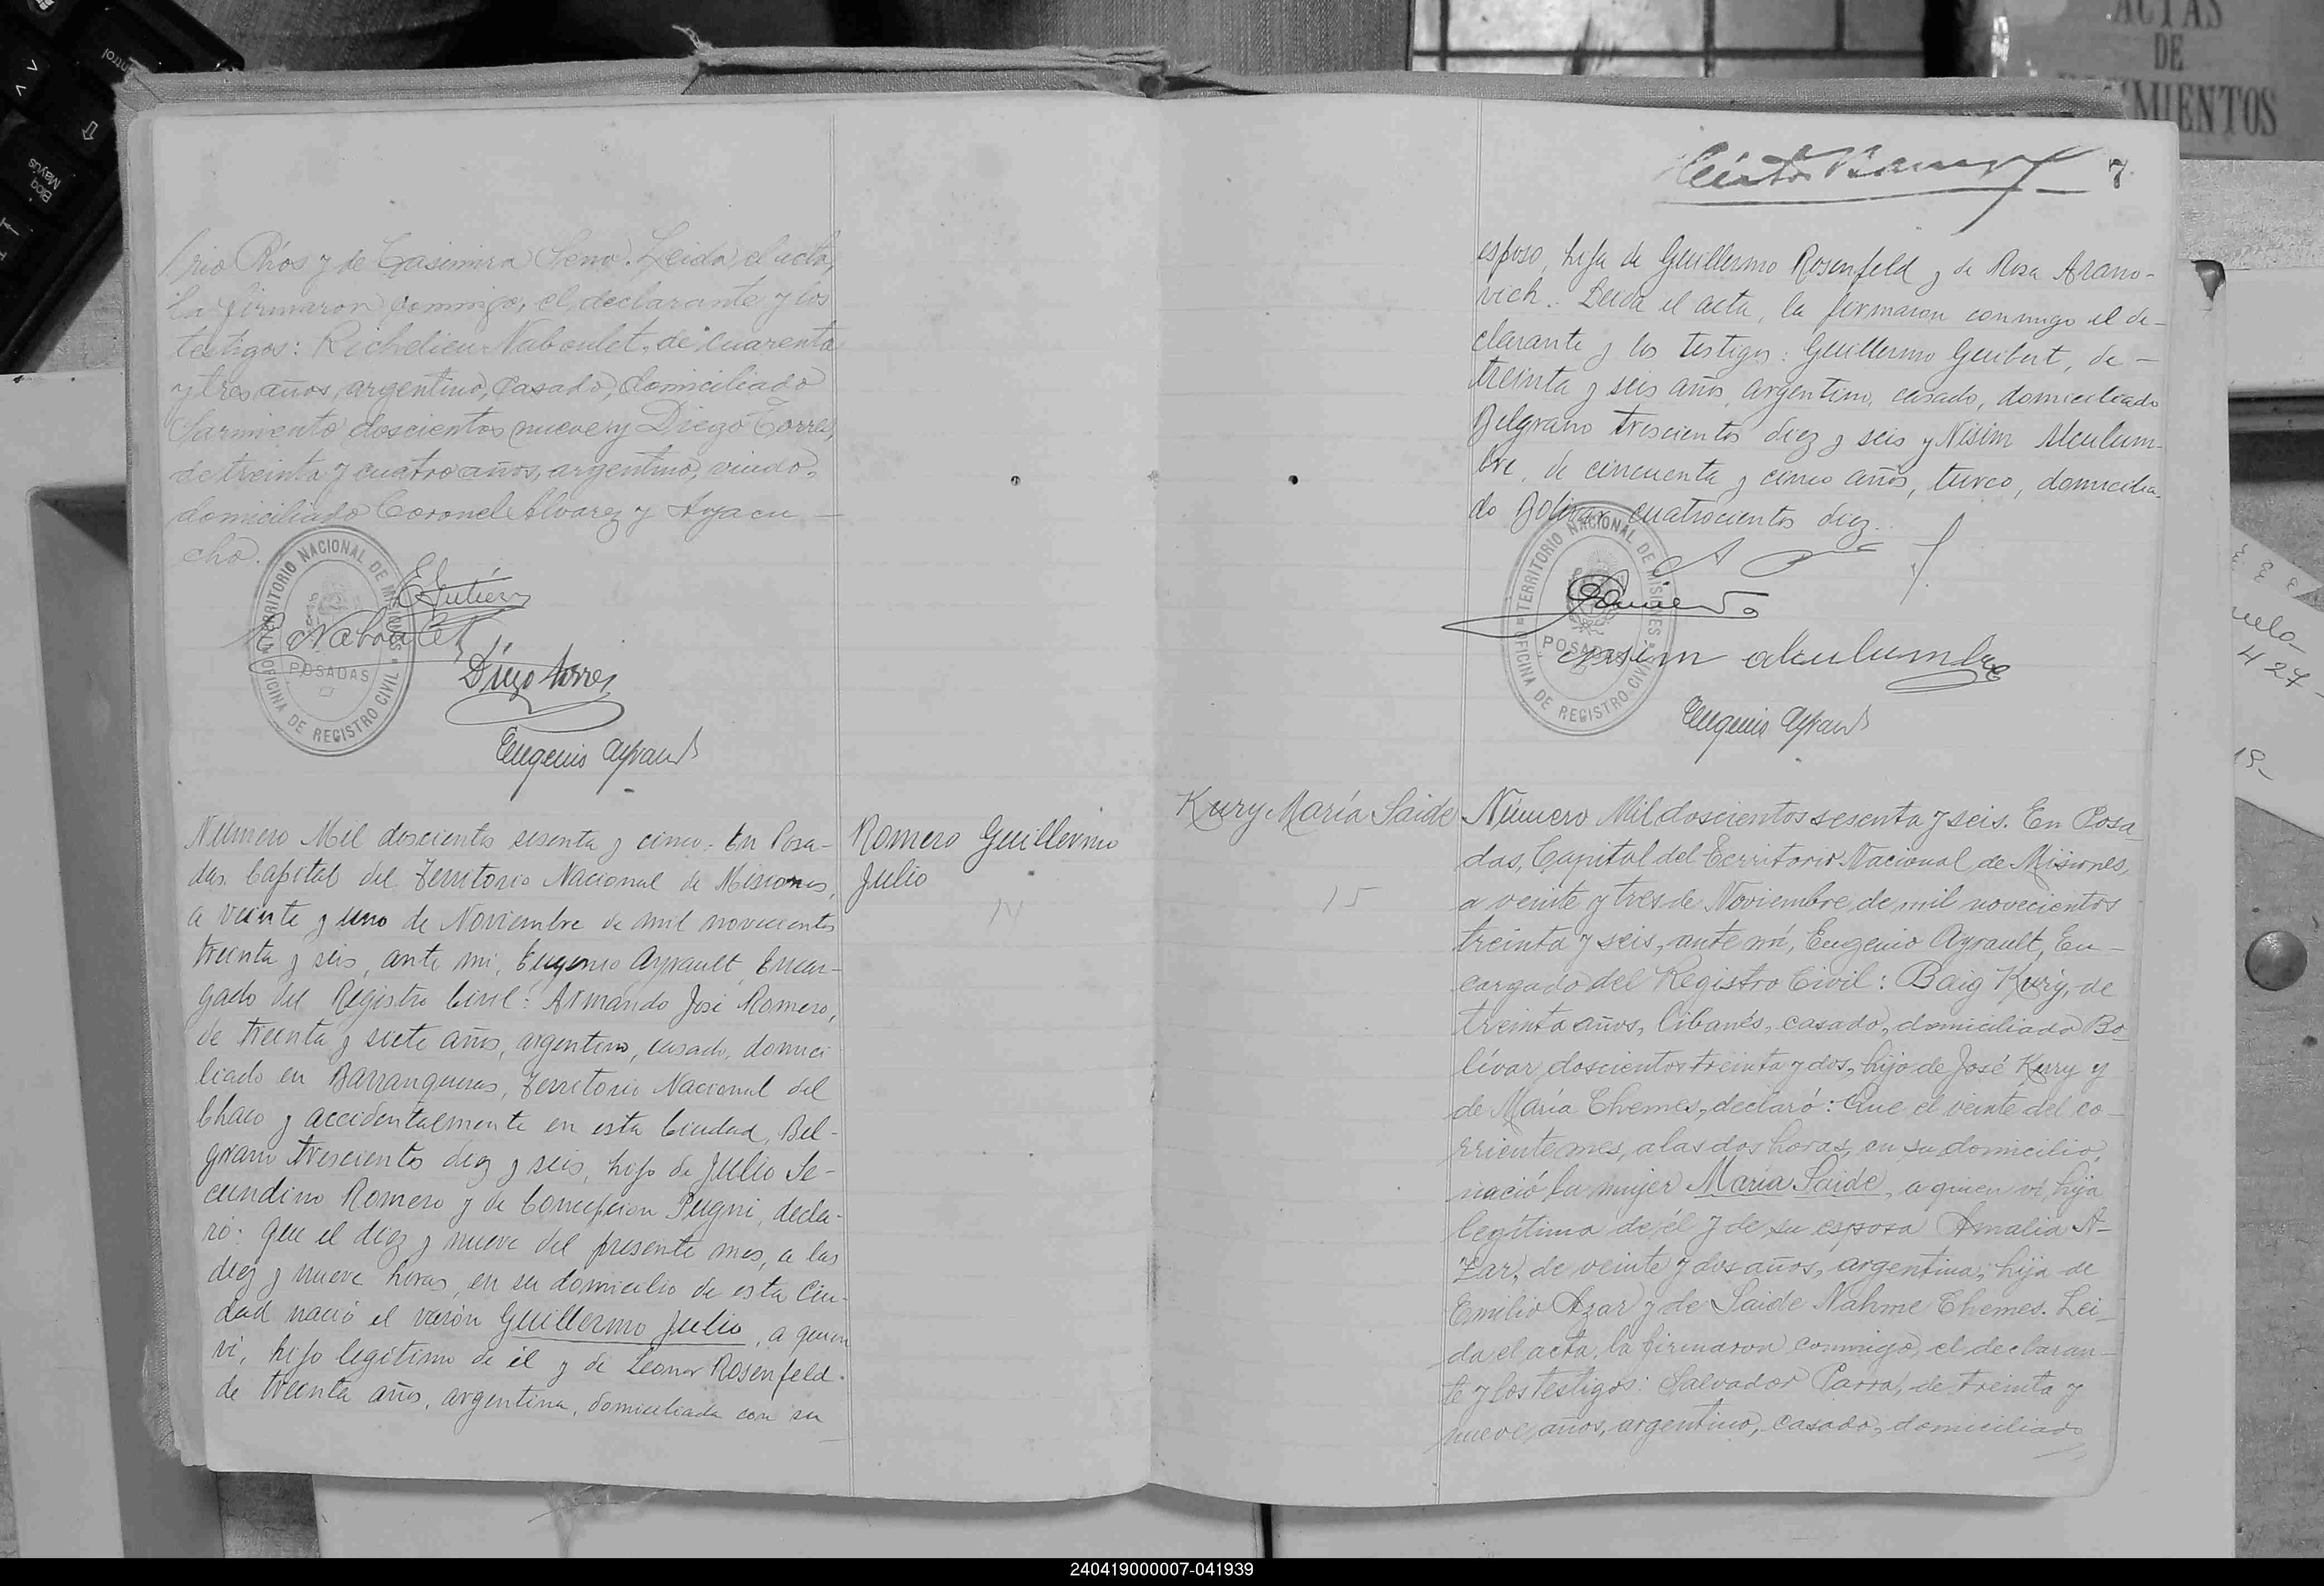 ACTAS
DE
MIENTOS
Control
Bloq
Mayús
rio Pros y de Casimira Seno. Leida el acta,
la firmaron conmigo, el declarante y los
testigos: Richelieu Naboulet, de cuarenta
y tres años, argentino, casado, domiciliado
Sarmiento doscientos nueve y Diego Torres,
de treinta y cuatro años, argentino, viudo,
domiciliado Coronel Alvarez y Ayacu-
cho.
TERRITORIO NACIONAL DE MISIONES
OFICINA DE REGISTRO CIVIL
POSADAS
E Gutierrez
R Naboulet
Diego torres
Eugenio Ayrault
Número Mil doscientos sesenta y cinco. En Posa-
das. Capital del Territorio Nacional de Misiones,
a veinte y uno de Noviembre de mil novecientos
treinta y seis, ante mi, Eugenio Ayrault, Encar-
gado del Registro Civil: Armando José Romero,
de treinta y siete años, argentino, casado, domici
liado en Barranqueras, Territorio Nacional del
Chaco y accidentalmente en esta Ciudad, Bel-
grano trescientos diez y seis, hijo de Julio Se-
cundino Romero y de Concepcion Pugni, decla-
ró: que el diez y nueve del presente mes, a las
diez y nueve horas, en su domicilio de esta Ciu-
dad nació el varón Guillermo Julio, a quien
vi, hijo legitimo de él y de Leonor Rosenfeld.
de treinta años, argentina, domiciliada con su
Romero Guillermo
Julio
14
7
esposo, hija de Guillermo Rosenfeld y de Rosa Arano-
vich. Leida el acta, la firmaron conmigo el de-
clarante y los testigos: Guillermo Guibert, de-
treinta y seis años, argentino, casado, domiciliado
Belgrano trescientos diez y seis y Nisim Alculum-
bre, de cincuenta y cinco años, turco, domicilia-
do Bolivar cuatrocientos diez.
TERRITORIO NACIONAL DE MISIONES
OFICINA DE REGISTRO CIVIL
POSADAS
Romero
nisim alculumbre
Eugenio Ayrault
Kury María Saide
15
Número Mil doscientos sesenta y seis. En Posa
das, Capital del Territorio Nacional de Misiones,
a veinte y tres de Noviembre de mil novecientos
treinta y seis, ante mí, Eugenio Ayrault, En-
cargado del Registro Civil: Baig Kury, de
treinta años, Libanés, casado, domiciliado Bo-
lívar doscientos treinta y dos, hijo de José Kury y
de María Chemes, declaró: Que el veinte del co-
rriente mes, a las dos horas, en su domicilio,
nació la mujer María Saide, a quien vi, hija
legítima de él y de su esposa Amalia A-
zar, de veinte y dos años, argentina, hija de
Emilio Azar y de Saide Nahme Chemes. Lei-
da el acta, la firmaron conmigo, el declaran-
te y los testigos: Salvador Parra, de treinta y
nueve años, argentino, casado, domiciliado
427
19-
240419000007-041939